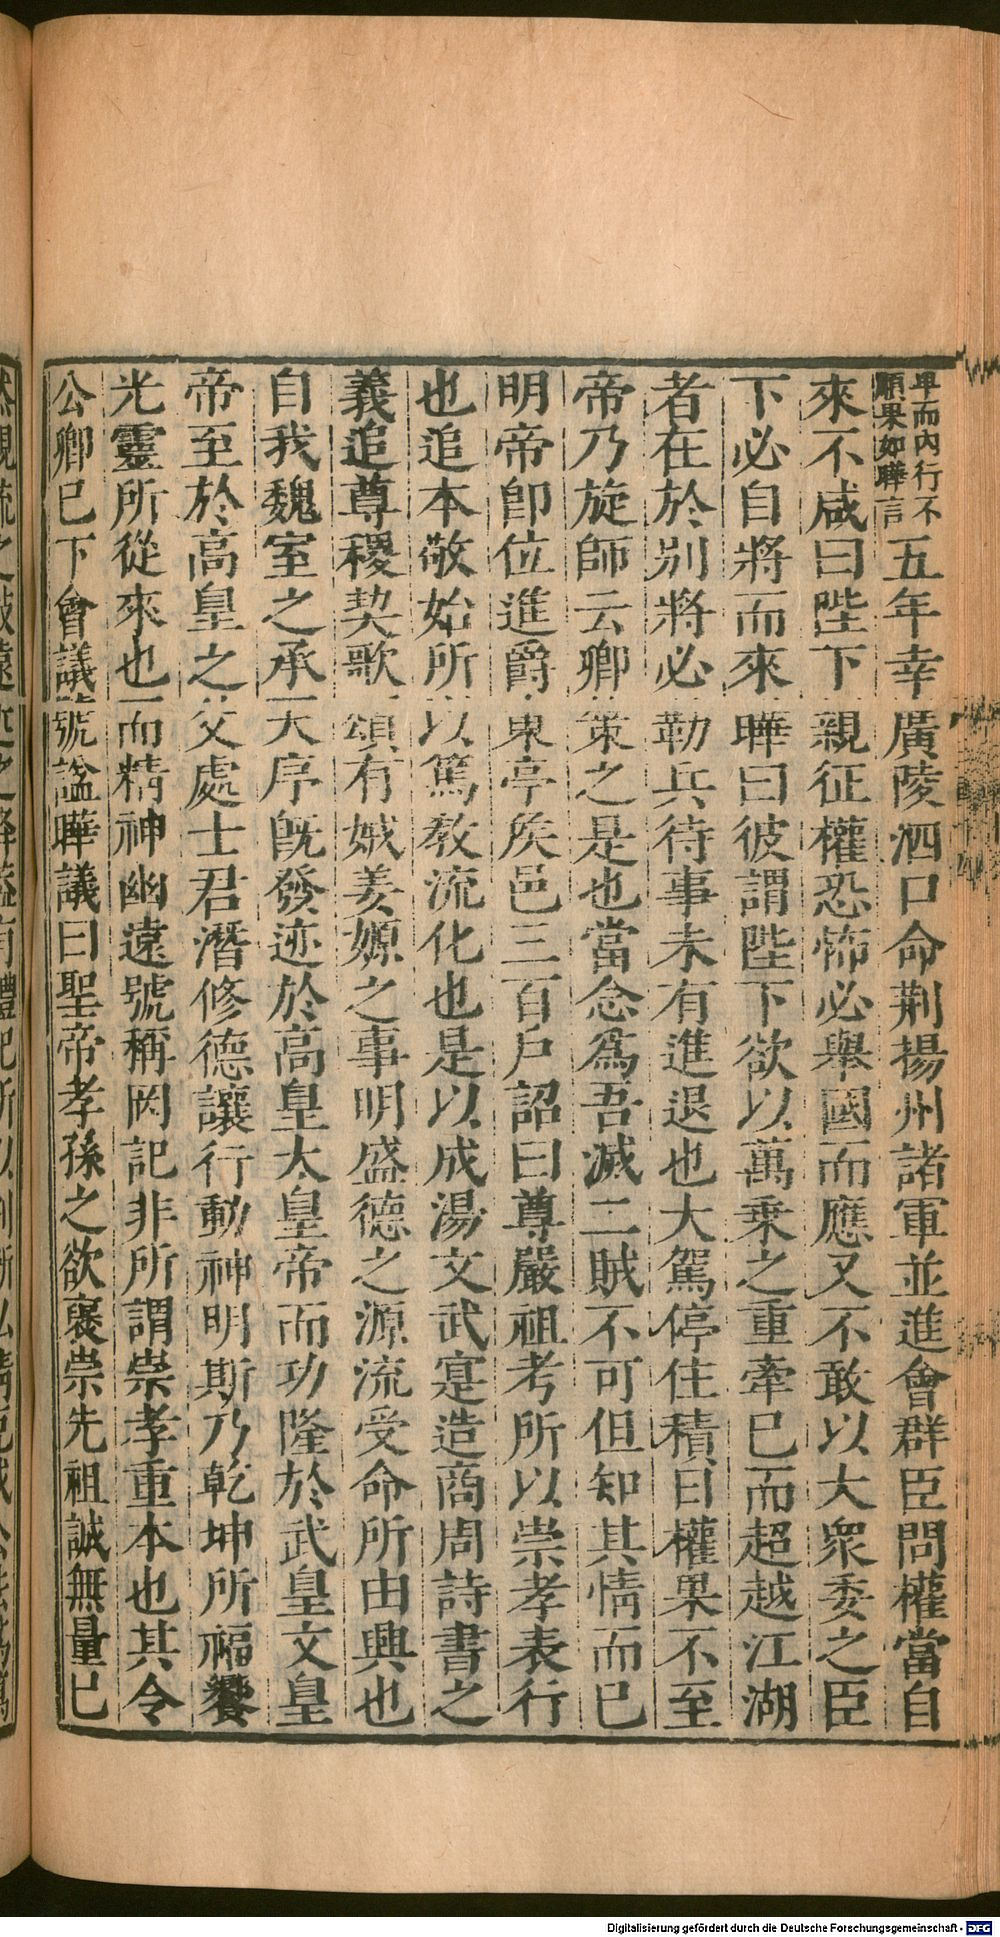 卑而內行不
順果如曄言
五年幸廣陵泗口命荆揚州諸軍並進會群臣問權當自
來不咸曰陛下親征權恐怖必舉國而應又不敢以大衆委之臣
下必自將而來曄曰彼謂陛下欲以萬乗之重牽已而超越江湖
者在於别將必勒兵待事未有進退也大駕停住積日權果不至
帝乃旋師云卿策之是也當念爲吾滅二賊不可但知其情而已
明帝卽位進爵東亭矦邑三百戶詔曰尊嚴祖考所以崇孝表行
也追本敬始所以篤教流化也是以成湯文武寔造商周詩書之
義追尊稷契歌頌有娀姜嫄之事明盛德之源流受命所由興也
自我魏室之承天序旣發迹於高皇太皇帝而功隆於武皇文皇
帝至於高皇之父處士君潛修德讓行動神明斯乃乾坤所福饗
光靈所從來也而精神幽遠號稱罔記非所謂崇孝重本也其令
公卿已下會議號諡曄議曰聖帝孝孫之欲襃崇先祖誠無量已
Digitalisierung gefördert durch die Deutsche Forschungsgemeinschaft - DFG